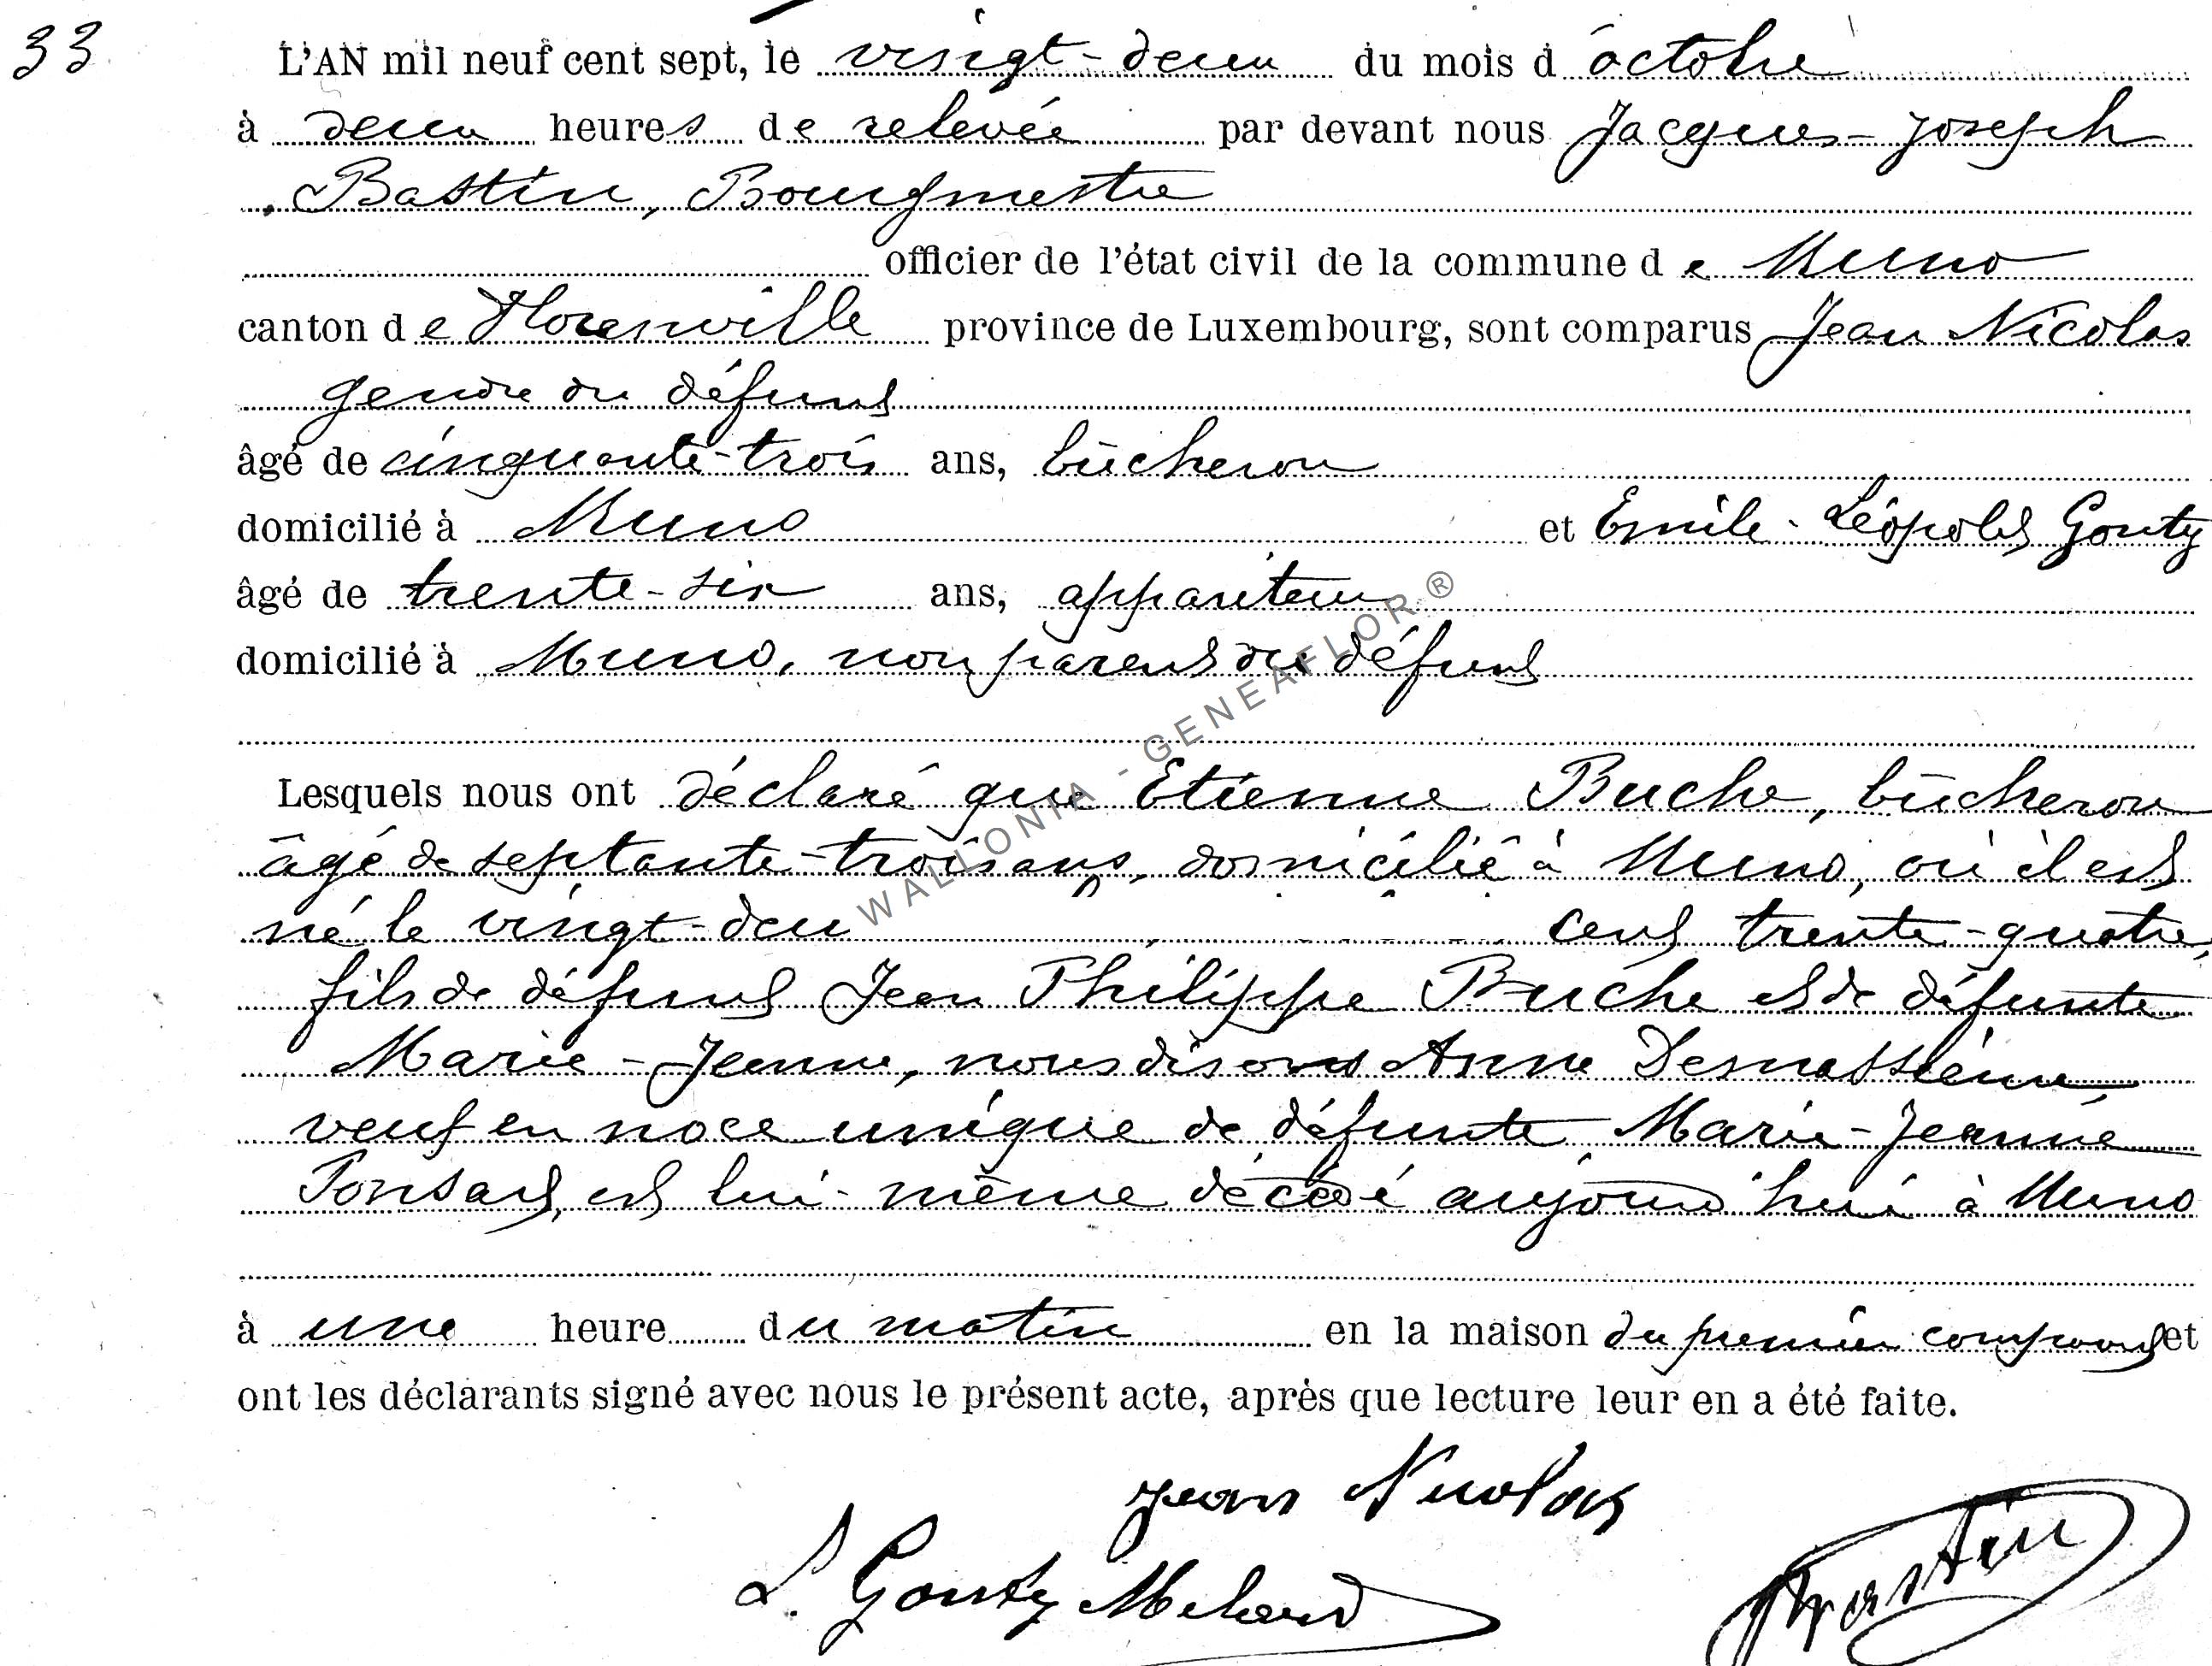 33
L'AN mil neuf cent sept, le vingt-deux du mois d'octobre
à deux heures de relevée par devant nous Jacques-Joseph
Bastin, Bourgmestre
officier de l'état civil de la commune de Muno
canton de Florenville province de Luxembourg, sont comparus Jean Nicolas
gendre du défunt
âgé de cinquante-trois ans, bûcheron
domicilié à Muno et Emile-Léopold Gouty
âgé de trente-six ans, appariteur
domicilié à Muno, non parent du défunt
Lesquels nous ont déclaré que Etienne Buche, bûcheron
âgé de septante-trois ans, domicilié à Muno, où il est
né le vingt-deu cent trente-quatre,
fils de défunt Jean Philippe Buche et de défunte
Marie-Jeanne, nous disons Anne
veuf en noce unique de défunte Marie-Jeanne
Ponsard, est lui-même décédé aujourd'hui à Muno
à une heure du matin en la maison du premier comparant et
ont les déclarants signé avec nous le présent acte, après que lecture leur en a été faite.
Jean Nicolas
L. Gouty Bastin
WALLONIA - GENEAFLOR ®